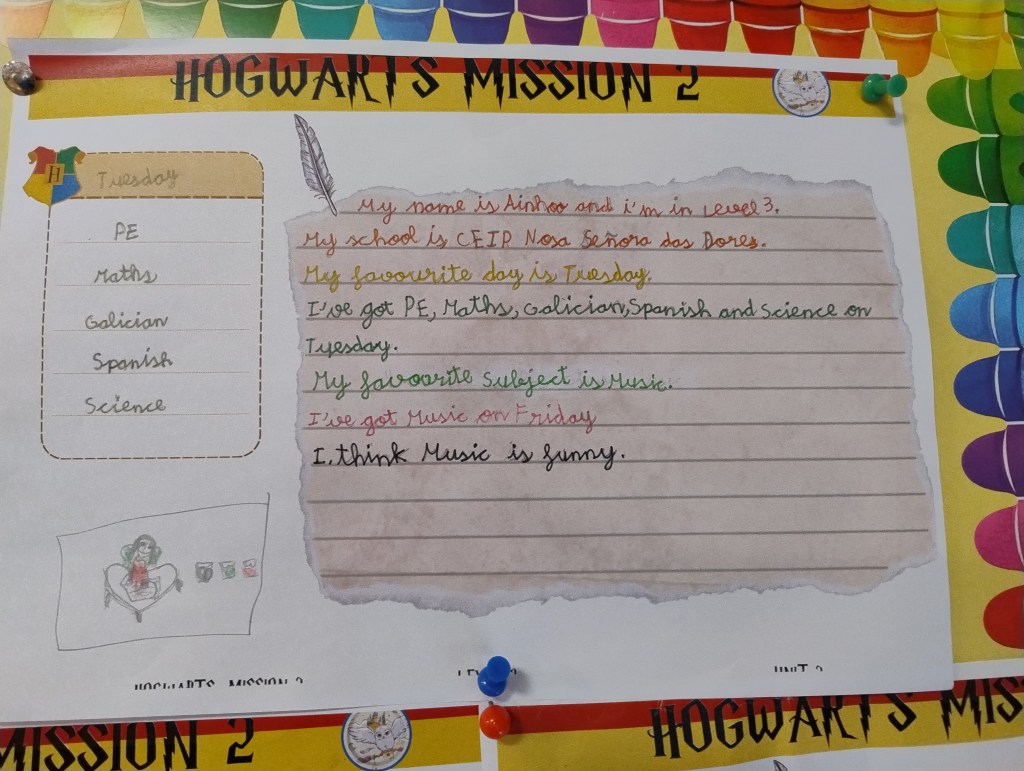 HOGWARTS MISSION 2
H
Tuesday
PE
Maths
Galician
Spanish
Science
My name is Ainhoo and i'm in Level 3.
My school is CEIP Nosa Señora das Dores.
My favourite day is Tuesday.
I've got PE, Maths, Galician, Spanish and Science on
Tuesday.
My favourite Subject is Music.
I've got Music on Friday
I think Music is funny.
HOGWARTS MISSION 2
UNIT 2
MISSION 2
HOGWARTS MIS